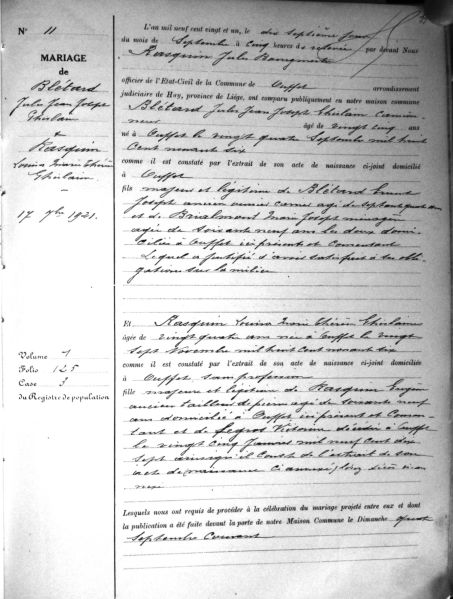 N° 11
MARIAGE
de
Blétard
Jules Jean Joseph
Ghislain
&
Rasquin
Louisa Marie Thérèse
Ghislain
17 7bre 1921.
Volume 1
Folio 125
Case 3
du Registre de population
L'an mil neuf cent vingt et un, le dix septième jour
du mois de Septembre à cinq heures de relevée par devant Nous
Rasquin Jules
officier de l'Etat-Civil de la Commune de Ouffet arrondissement
judiciaire de Huy, province de Liége, ont comparu publiquement en notre maison commune
Blétard Jules Jean Joseph Ghislain
âgé de vingt cinq ans
né à Ouffet le vingt quatre Septembre mil huit
cent nonante six
comme il est constaté par l'extrait de son acte de naissance ci-joint domicilié
à Ouffet
fils majeur et légitime de Blétard
Joseph ancien âgé de septante ans
et de Brialmont Marie Josèphe ménagère
agée de soixante neuf ans les deux domi-
ciliés à Ouffet ici présents et consentant
Lequel a justifié d'avoir satisfait à ses obli-
gations sur la milice
Et Rasquin Louisa Marie Thérèse Ghislaine
âgée de vingt quatre ans née à Ouffet le vingt
sept Novembre mil huit cent nonante six
comme il est constaté par l'extrait de son acte de naissance ci-joint domiciliée
à Ouffet sans profession
fille majeure et légitime de Rasquin Eugène
ancien tailleur de pierres âgé de soixante neuf
ans domicilié à Ouffet ici présent et consen-
tant et de Legros Victorine décédée à Ouffet
le vingt cinq Janvier mil neuf cent dix
sept ainsi qu'il conste de l'extrait de son
acte de
Lesquels nous ont requis de procéder à la célébration du mariage projeté entre eux et dont
la publication a été faite devant la porte de notre Maison Commune le Dimanche quatre
Septembre courant